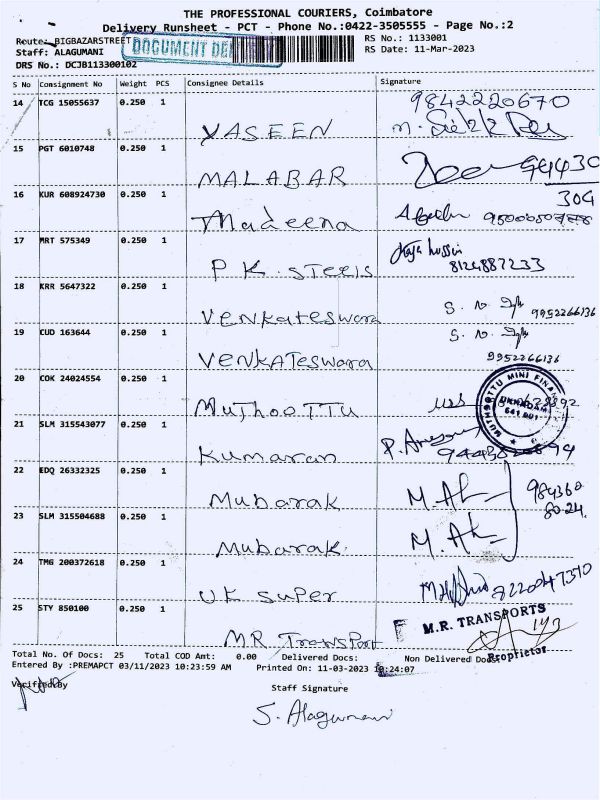 THE PROFESSIONAL COURIERS, Coimbatore
Delivery Runsheet - PCT - Phone No.:0422-3505555 - Page No.:2
Route: BIGBAZARSTREET
DOCUMENT DE
RS No.: 1133001
Staff: ALAGUMANI
RS Date: 11-Mar-2023
DRS No.: DCJB113300102
S No Consignment No Weight PCS Consignee Details Signature
14 TCG 15055637 0.250 1 YASEEN 9842220670
15 PGT 6010748 0.250 1 MALABAR 94430
304
16 KUR 608924730 0.250 1 Madeena
17 MRT 575349 0.250 1 P K Steels Kaja hussin
8124887233
18 KRR 5647322 0.250 1 Venkateswara 9952266136
19 CUD 163644 0.250 1 Venkateswara 9952266136
20 COK 24024554 0.250 1 Muthoottu
MUTHOOTTU MINI FINAN
UKKADAM
641 001
21 SLM 315543077 0.250 1 Kumaran
22 EDQ 26332325 0.250 1 Mubarak 984360
8024
23 SLM 315504688 0.250 1 Mubarak
24 TMG 200372618 0.250 1 UK Super 8220047370
25 STY 850100 0.250 1 MR Transport
M.R. TRANSPORTS
Proprietor
Total No. Of Docs: 25 Total COD Amt: 0.00 Delivered Docs: Non Delivered Docs:
Entered By :PREMAPCT 03/11/2023 10:23:59 AM Printed On: 11-03-2023 10:24:07
Verified by
Staff Signature
S. Alagumani